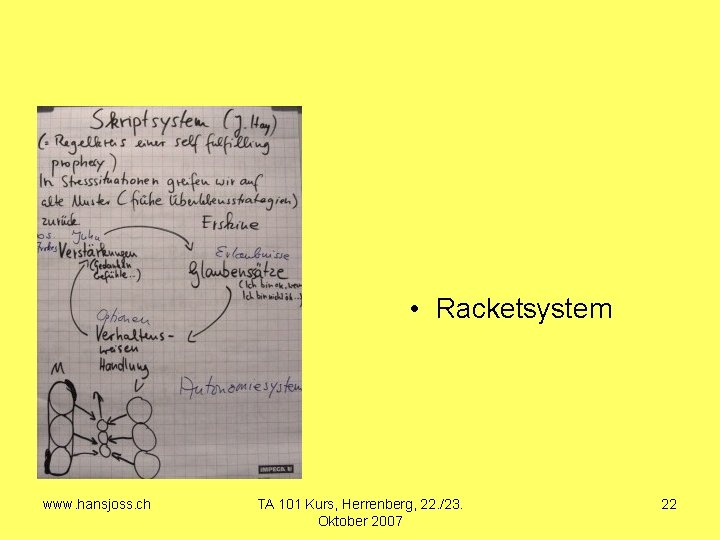 Skriptsystem (J. Hay)
(= Regelkreis einer self fulfilling
prophecy)
In Stresssituationen greifen wir auf
alte Muster (frühe Überlebensstrategien)
zurück
Erskine
Juhu
Verstärkungen
(Gedanken
Gefühle...)
Erlaubnisse
Glaubenssätze
(Ich bin ok, wenn
Ich bin nicht ok...)
Optionen
Verhaltens-
weisen
Handlung
Autonomiesystem
M
IMPEGA
• Racketsystem
www.hansjoss.ch
TA 101 Kurs, Herrenberg, 22./23.
Oktober 2007
22